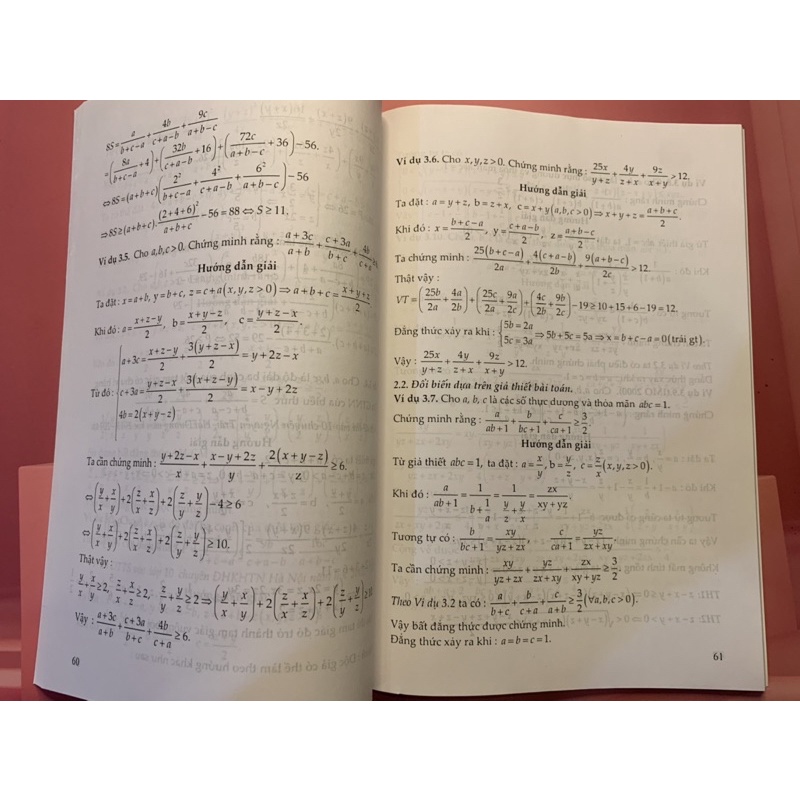 8S = a/(b+c−a) + 4b/(c+a−b) + 9c/(a+b−c)
= (8a/(b+c−a) + 4) + (32b/(c+a−b) + 16) + (72c/(a+b−c) + 36) − 56.
⇔ 8S = (a+b+c)(2²/(b+c−a) + 4²/(c+a−b) + 6²/(a+b−c)) − 56
⇒ 8S ≥ (a+b+c).(2+4+6)²/(a+b+c) − 56 = 88 ⇔ S ≥ 11.
Ví dụ 3.5. Cho a,b,c>0. Chứng minh rằng : (a+3c)/(a+b) + (c+3a)/(b+c) + 4b/
Hướng dẫn giải
Ta đặt : x = a+b, y = b+c, z = c+a (x,y,z>0) ⇒ a+b+c = (x+y+z)/2
Khi đó : a = (x+z−y)/2, b = (x+y−z)/2, c = (y+z−x)/2.
a+3c = (x+z−y)/2 + 3(y+z−x)/2 = y+2z−x
Từ đó : c+3a = (y+z−x)/2 + 3(x+z−y)/2 = x−y+2z
4b = 2(x+y−z)
Ta cần chứng minh : (y+2z−x)/x + (x−y+2z)/y + 2(x+y−z)/z ≥ 6.
⇔ (y/x + x/y) + 2(z/x + x/z) + 2(z/y + y/z) − 4 ≥ 6
⇔ (y/x + x/y) + 2(z/x + x/z) + 2(z/y + y/z) ≥ 10.
Thật vậy :
y/x + x/y ≥ 2, z/x + x/z ≥ 2, z/y + y/z ≥ 2 ⇒ (y/x + x/y) + 2(z/x + x/z) + 2(z/y + y/z) ≥
Vậy : (a+3c)/(a+b) + (c+3a)/(b+c) + 4b/(c+a) ≥ 6.
60
Ví dụ 3.6. Cho x,y,z>0. Chứng minh rằng : 25x/(y+z) + 4y/(z+x) + 9z/(x+y) > 12.
Hướng dẫn giải
Ta đặt : a = y+z, b = z+x, c = x+y (a,b,c>0) ⇒ x+y+z = (a+b+c)/2.
Khi đó : x = (b+c−a)/2, y = (c+a−b)/2, z = (a+b−c)/2.
Ta chứng minh : 25(b+c−a)/2a + 4(c+a−b)/2b + 9(a+b−c)/2c > 12.
Thật vậy :
VT = (25b/2a + 4a/2b) + (25c/2a + 9a/2c) + (4c/2b + 9b/2c) − 19 ≥ 10+15+6−19 = 12.
Đẳng thức xảy ra khi : {5b = 2a; 5c = 3a ⇒ 5b+5c = 5a ⇒ x = b+c−a = 0 (trái gt).
Vậy : 25x/(y+z) + 4y/(z+x) + 9z/(x+y) > 12.
2.2. Đổi biến dựa trên giả thiết bài toán.
Ví dụ 3.7. Cho a, b, c là các số thực dương và thỏa mãn abc = 1.
Chứng minh rằng : a/(ab+1) + b/(bc+1) + c/(ca+1) ≥ 3/2.
Hướng dẫn giải
Từ giả thiết abc = 1, ta đặt : a = x/y, b = y/z, c = z/x (x,y,z>0).
Khi đó : a/(ab+1) = 1/(b + 1/a) = 1/(y/z + y/x) = zx/(xy+yz).
Tương tự có : b/(bc+1) = xy/(yz+zx), c/(ca+1) = yz/(zx+xy).
Ta cần chứng minh : xy/(yz+zx) + yz/(zx+xy) + zx/(xy+yz) ≥ 3/2.
Theo Ví dụ 3.2 ta có : a/(b+c) + b/(c+a) + c/(a+b) ≥ 3/2 (∀a,b,c>0).
Vậy bất đẳng thức được chứng minh.
Đẳng thức xảy ra khi : a = b = c = 1.
61